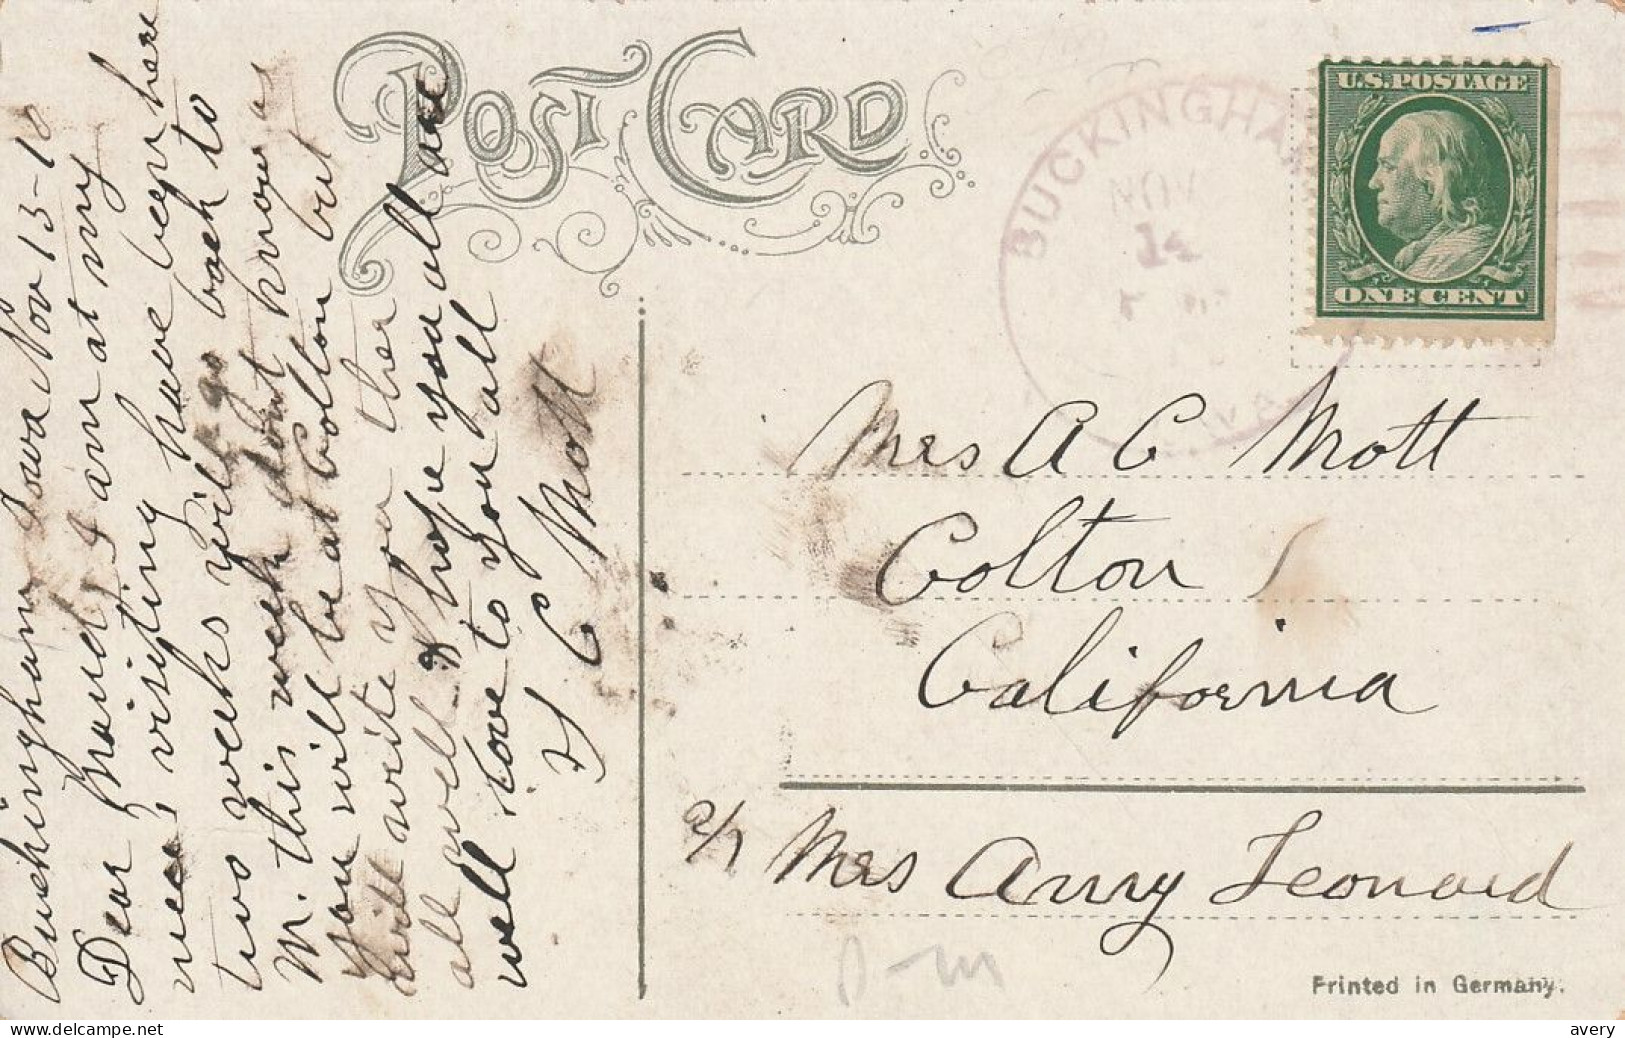 POST CARD
BUCKINGHAM
NOV
14
U.S. POSTAGE
ONE CENT
Buckingham Iowa Nov 13-10
Dear Maud, I am at my
niece, visiting have been here
two weeks will go back to
M. this week dont know as
you will be at Colton but
will write you ther
all well I hope you all are
well love to you all
H C Mott
Mrs A C Mott
Colton
California
Mrs Amy Leonard
Printed in Germany.
avery